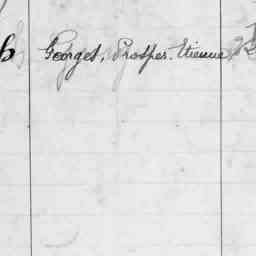 Georget, Prosper. Etienne